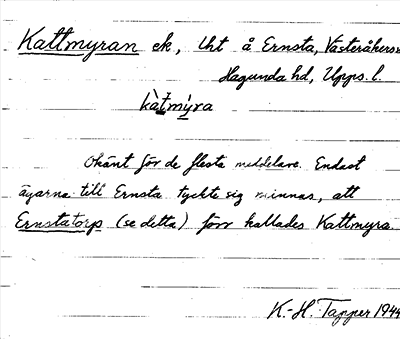 Kattmyran ek, lht å Ernsta, Västeråkers
Hagunda hd, Upps. l.
kàtmýra
Okänt för de flesta meddelare. Endast
ägarna till Ernsta tyckte sig minnas, att
Ernstatorp (se detta) förr kallades Kattmyra.
K.-H. Tapper 1944